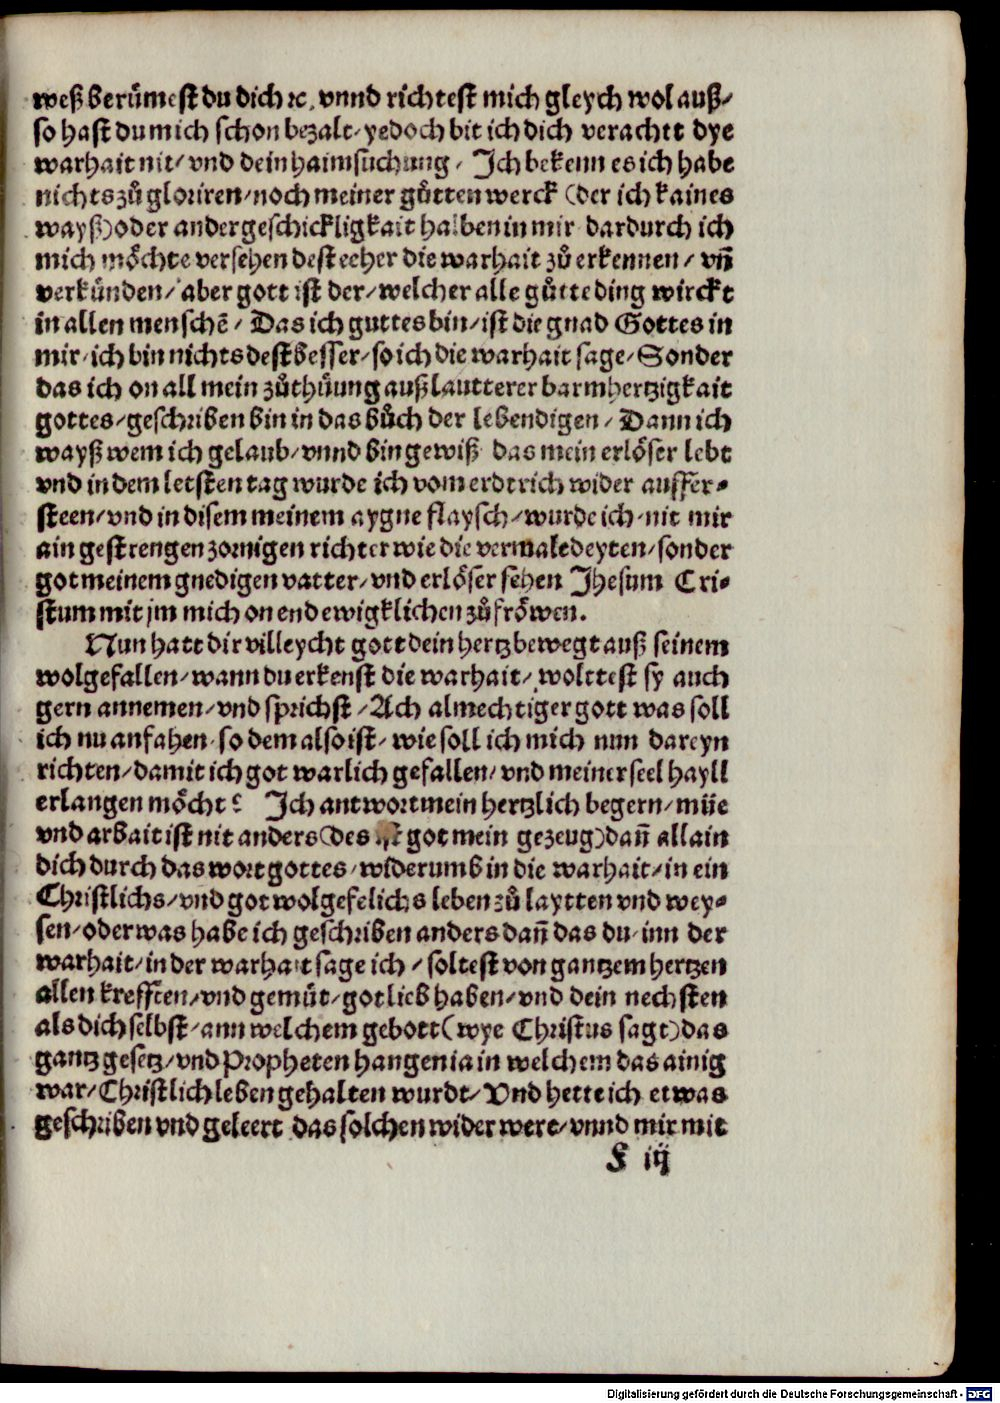 weß berůmest du dich ꝛc. vnnd richtest mich gleych wol auß/
so hast du mich schon bezalt/ yedoch bit ich dich verachtt dye
warhait nit/ vnd dein haimsuchung/ Ich bekenn es ich habe
nichts zů gloriren/ noch meiner gůtten werck (der ich kaines
wayß) oder ander geschickligkait halben in mir dardurch ich
mich möchte versehen dest eeher die warhait zů erkennen/ vñ
verkünden/ aber gott ist der/ welcher alle gůtte ding wirckt
in allen menschẽ/ Das ich guttes bin/ ist die gnad Gottes in
mir/ ich bin nichts dest besser/ so ich die warhait sage/ Sonder
das ich on all mein zůthüung auß lautterer barmhertzigkait
gottes/ geschriben bin in das bůch der lebendigen/ Dann ich
wayß wem ich gelaub/ vnnd bin gewiß das mein erlöser lebt
vnd in dem letsten tag wurde ich vom erdtrich wider auffer-
steen/ vnd in disem meinem aygne flaysch/ wurde ich nit mir
ain gestrengen zornigen richter wie die vermaledeyten/ sonder
got meinem gnedigen vatter/ vnd erlöser sehen Jhesum Cri-
stum mit jm mich on end ewigklichen zů fröwen.
Nun hatt dir villeycht gott dein hertz bewegt auß seinem
wolgefallen/ wann du erkenst die warhait/ wolttest sy auch
gern annemen/ vnd sprichst/ Ach almechtiger gott was soll
ich nu anfahen so dem also ist/ wie soll ich mich nun dareyn
richten/ damit ich got warlich gefallen/ vnd meiner seel hayll
erlangen möcht? Ich antwort mein hertzlich begern/ müe
vnd arbait ist nit anders (des ist got mein gezeug) dañ allain
dich durch das wort gottes/ widerumb in die warhait/ in ein
Christlichs/ vnd got wolgefelichs leben zů laytten vnd wey-
sen/ oder was habe ich geschriben anders dañ das du inn der
warhait/ in der warhait sage ich/ soltest von gantzem hertzen
allen krefften/ vnd gemüt/ got lieb haben/ vnd dein nechsten
als dich selbst/ ann welchem gebott (wye Christus sagt) das
gantz gesetz/ vnd Propheten hangen ia in welchem das ainig
war/ Christlich leben gehalten wurdt/ Vnd hette ich etwas
geschriben vnd geleert das solchen wider were/ vnnd mir mit
F iij
Digitalisierung gefördert durch die Deutsche Forschungsgemeinschaft - DFG